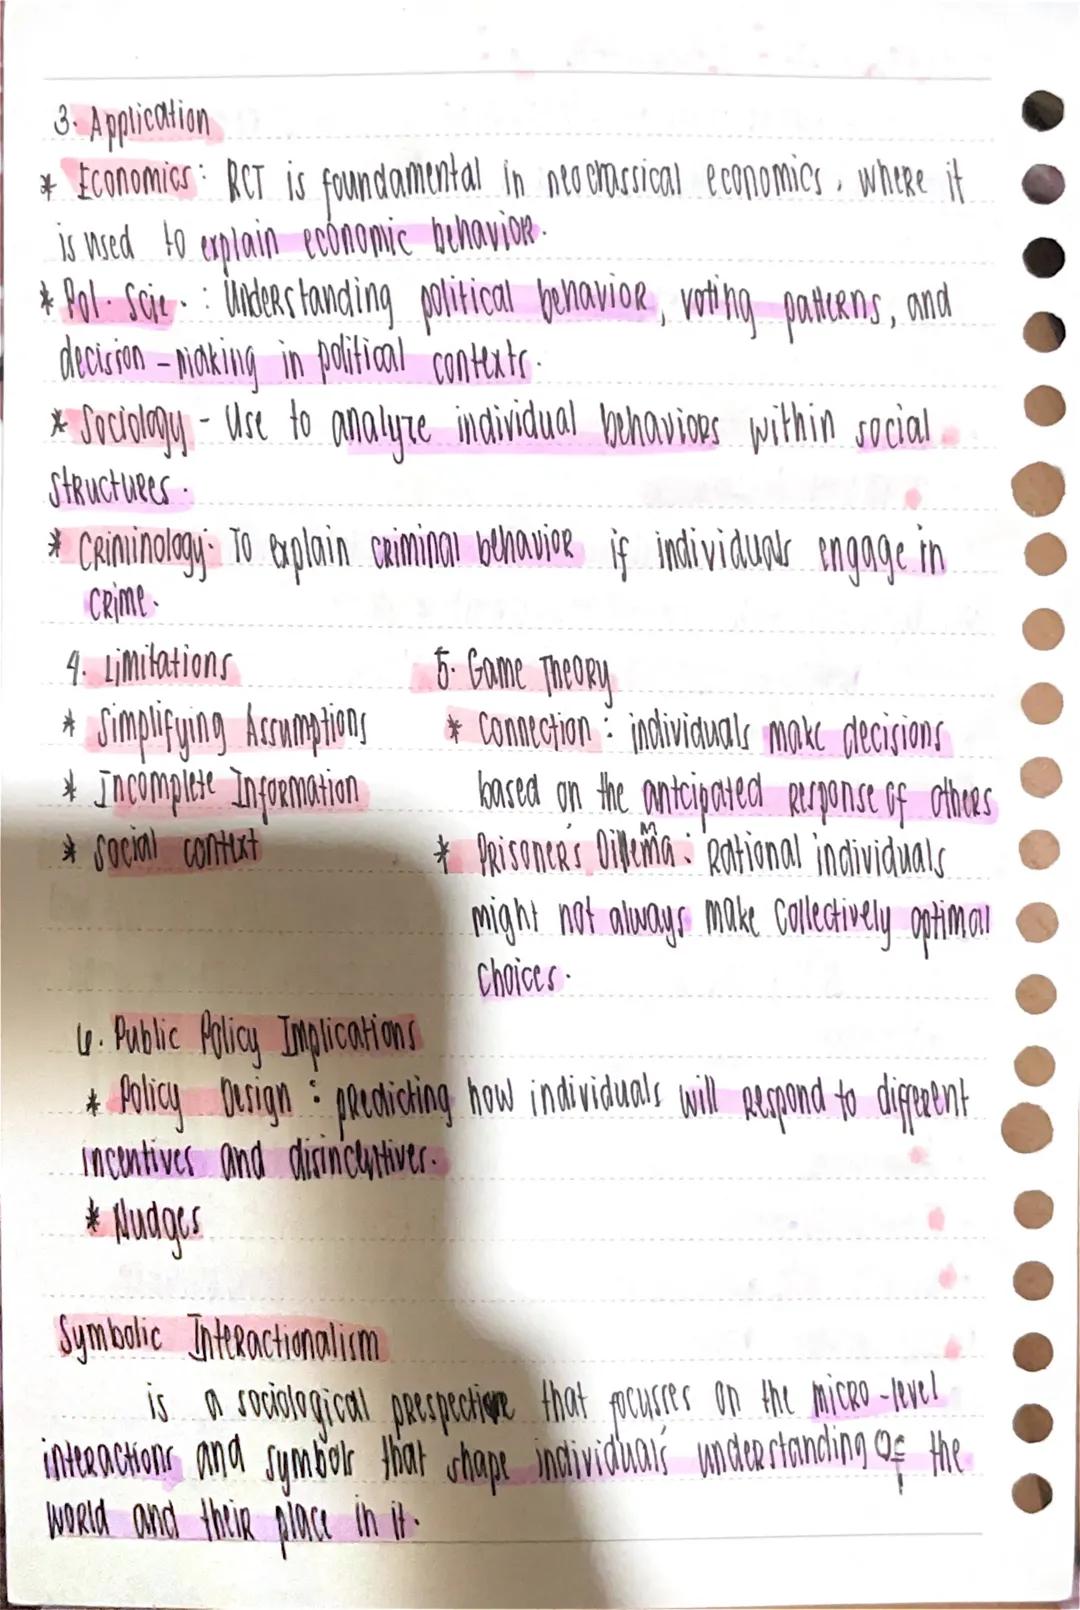 3. Application
* Economics: RCT is foundamental in neocrassical economics, where it
is used to explain economic behavior.
* Pol. Scie. : Understanding political behavior, voting patterns, and
decision-making in political contexts.
* Sociology - Use to analyze individual behaviors within social
structures.
* Criminology: To explain criminal behavior if individuals engage in
crime.
4. Limitations
* Simplifying Assumptions
* Incomplete Information
* Social context
5. Game Theory
* Connection : individuals make decisions
based on the antcipated response of others
* Prisoner's Dilemma : Rational individuals
might not always make collectively optimal
choices.
6. Public Policy Implications
* Policy Design : predicting how individuals will respond to different
incentives and disincentives.
* Nudges
Symbolic Interactionalism
is a sociological prespective that focusses on the micro-level
interactions and symbols that shape individual's understanding of the
world and their place in it.